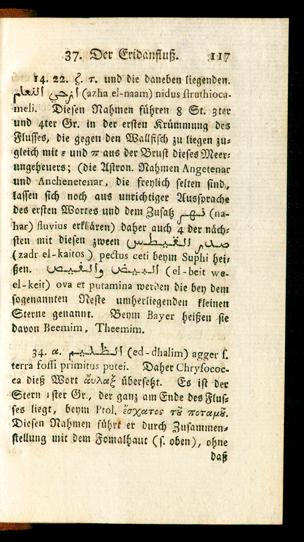 37. Der Eridanfluß. 117
14. 22. ζ. τ. und die daneben liegenden.
ازحي النعام (azha el-naam) nidus struthioca-
meli. Diesen Nahmen führen 8 St. 3ter
und 4ter Gr. in der ersten Krümmung des
Flusses, die gegen den Wallfisch zu liegen zu-
gleich mit ε und π aus der Brust dieses Meer-
ungeheuers; (die Astron. Nahmen Angetenar
und Anchenetenar, die freylich selten sind,
lassen sich noch aus unrichtiger Aussprache
des ersten Wortes und dem Zusatz نهر (na-
har) fluvius erklären) daher auch 4 der näch-
sten mit diesen zween صدر القيطس
(zadr el-kaitos) pectus ceti beym Suphi hei-
ßen. البيض والقيض (el-beit we-
el-keit) ova et putamina werden die bey dem
sogenannten Neste umherliegenden kleinen
Sterne genannt. Beym Bayer heißen sie
davon Beemim, Theemim.
34. α. الظليم (ed-dhalim) agger s.
terra fossi primitus putei. Daher Chrysococ-
ca dieß Wort ἄυλαξ übersetzt. Es ist der
Stern 1ster Gr., der ganz am Ende des Flus-
ses liegt, beym Ptol. ἔσχατος τȣ͂ ποταμȣ͂.
Diesen Nahmen führt er durch Zusammen-
stellung mit dem Fomalhaut (s. oben), ohne
daß